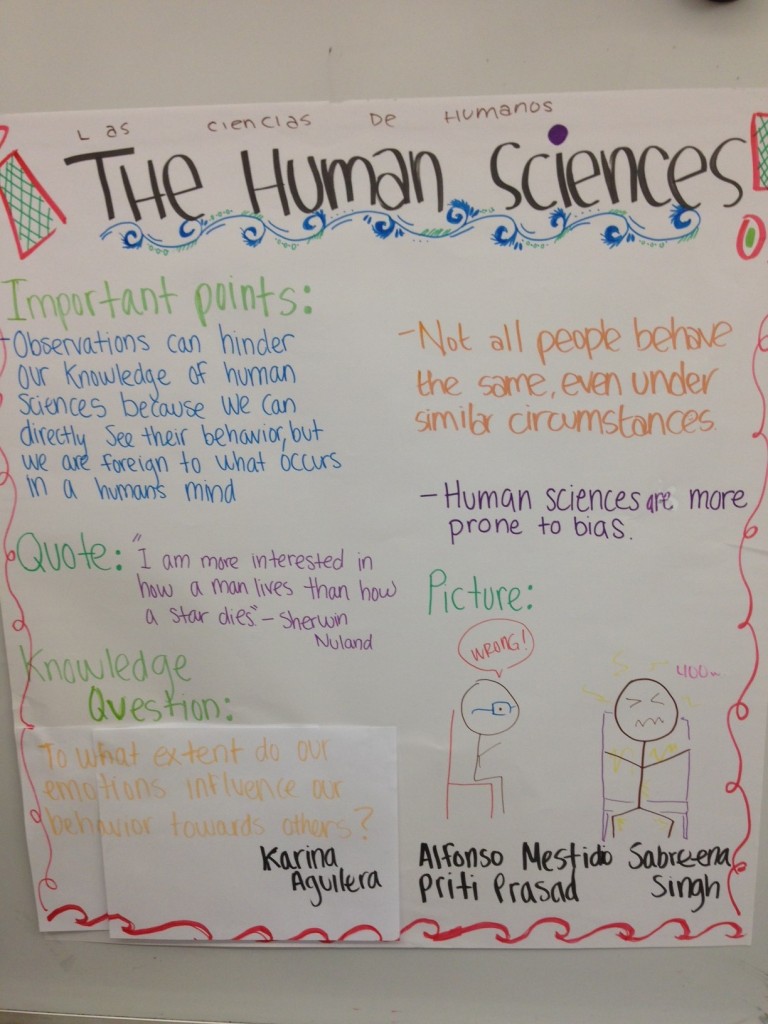 Las ciencias De Humanos
THE HUMAN SCIENCES
Important points:
-Observations can hinder
our Knowledge of human
Sciences because we can
directly See their behavior, but
we are foreign to what occurs
in a humans mind
-Not all people behave
the same, even under
similar circumstances.
-Human sciences are more
prone to bias.
Quote: "I am more interested in
how a man lives than how
a star dies" - Sherwin
Nuland
Picture:
WRONG!
Knowledge
Question:
To what extent do our
emotions influence our
behavior towards others?
Karina
Aguilera
Alfonso Mestidio Sabreena
Priti Prasad Singh